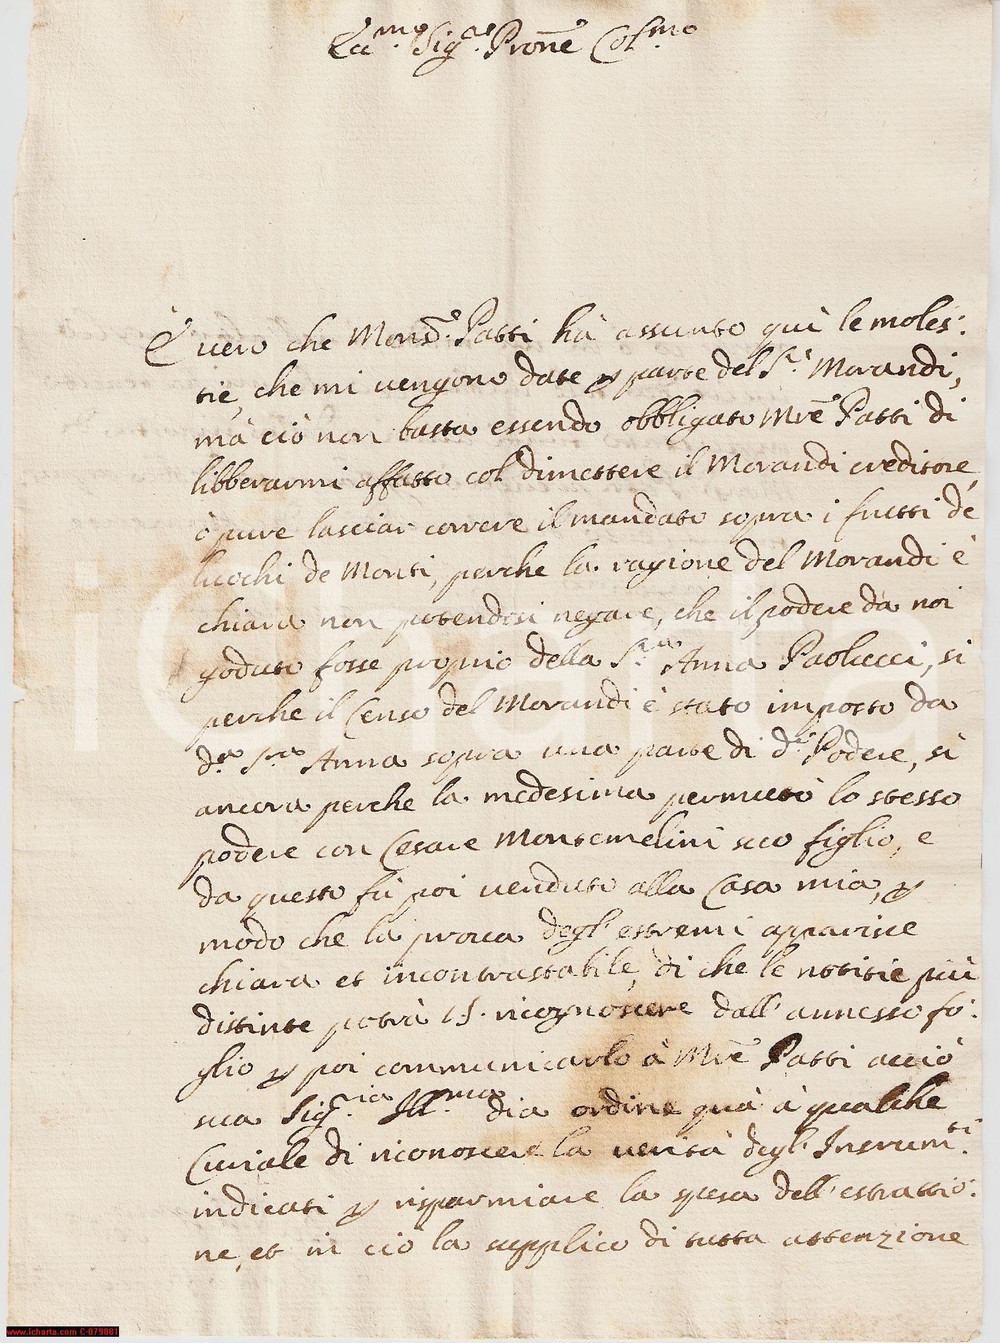 Ecc.mo Sig.re Prone Col.mo
È vero che Mons.e Patti hà assunto quì le moles:
tie, che mi vengono date p parte del S.r Morandi,
mà ciò non basta essendo obbligato Mre Patti di
libberarmi affatto col dimettere il Morandi creditore,
ò pure lasciar correre il mandato sopra i frutti de
luochi de Monti, perche la ragione del Morandi è
chiara non potendosi negare, che il podere da noi
goduto fosse proprio della S.ra Anna Paolucci, si
perche il Censo del Morandi è stato imposto da
d.a S.ra Anna sopra una parte di d.o Podere, sì
ancora perche la medesima permutò lo stesso
podere con Cesare Montemelini suo figlio, e
da questo fù poi venduto alla Casa mia, p
modo che la prova degl' estremi apparisce
chiara et incontrastabile, di che le notitie più
distinte potrà V.S. riconoscere dall' annesso fo:
glio p poi communicarlo à Mre Patti acciò
sua Sig.ria Ill.ma dia ordine quà à qualche
Curiale di riconoscere la verità degl' Instrum.ti
indicati p risparmiare la spesa dell' estrattio:
ne, et in ciò la supplico di tutta attenzione
iCharta
www.icharta.com C-079881